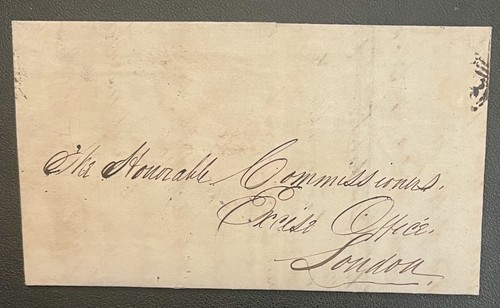 The Honorable Commissioners.
Excise Office.
London